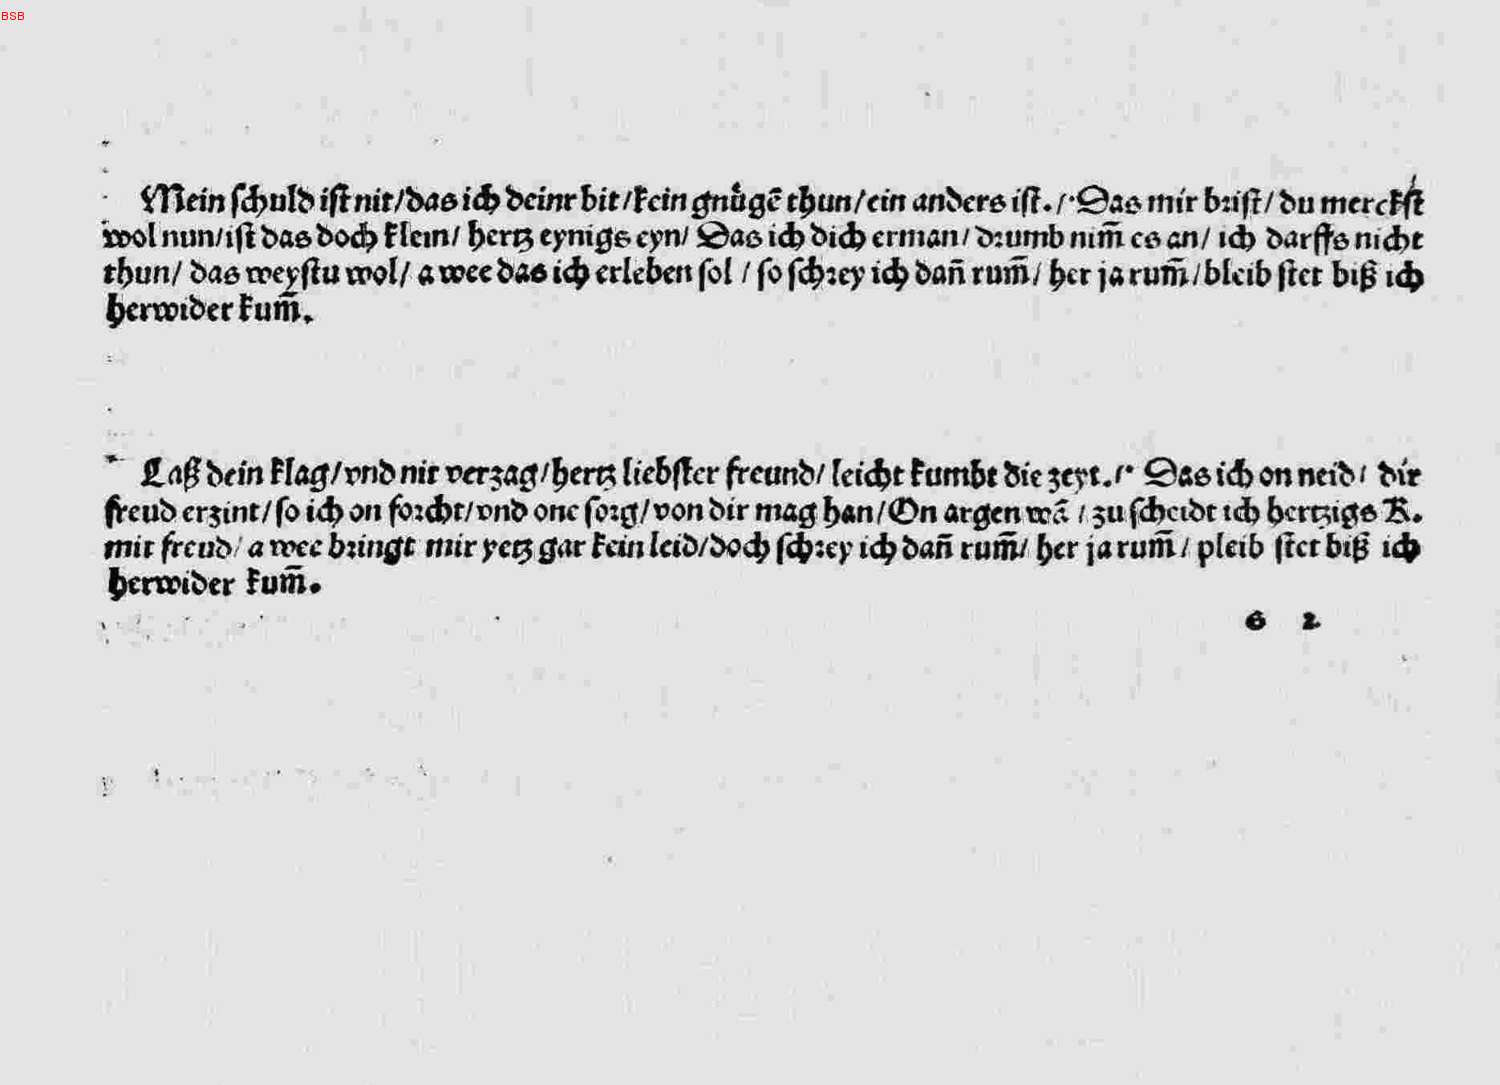 BSB
Mein schuld ist nit/das ich deinr bit/kein gnůgē thun/ein anders ist./·Das mir brist/ du merckst
wol nun/ist das doch klein/ hertz eynigs eyn/ Das ich dich erman/ drumb nim̄ es an/ ich darffs nicht
thun/ das weystu wol/ a wee das ich erleben sol / so schrey ich dan̄ rum̄/ her ja rum̄/bleib stet biß ich
herwider kum̄.
Laß dein klag/vnd nit verzag/hertz liebster freund/ leicht kumbt die zeyt./· Das ich on neid/ dir
freud erzint/so ich on forcht/vnd one sorg/von dir mag han/On argen wā /zu scheidt ich hertzigs K.
mit freud/ a wee bringt mir yetz gar kein leid/doch schrey ich dan̄ rum̄/ her ja rum̄/ pleib stet biß ich
herwider kum̄.
G 2